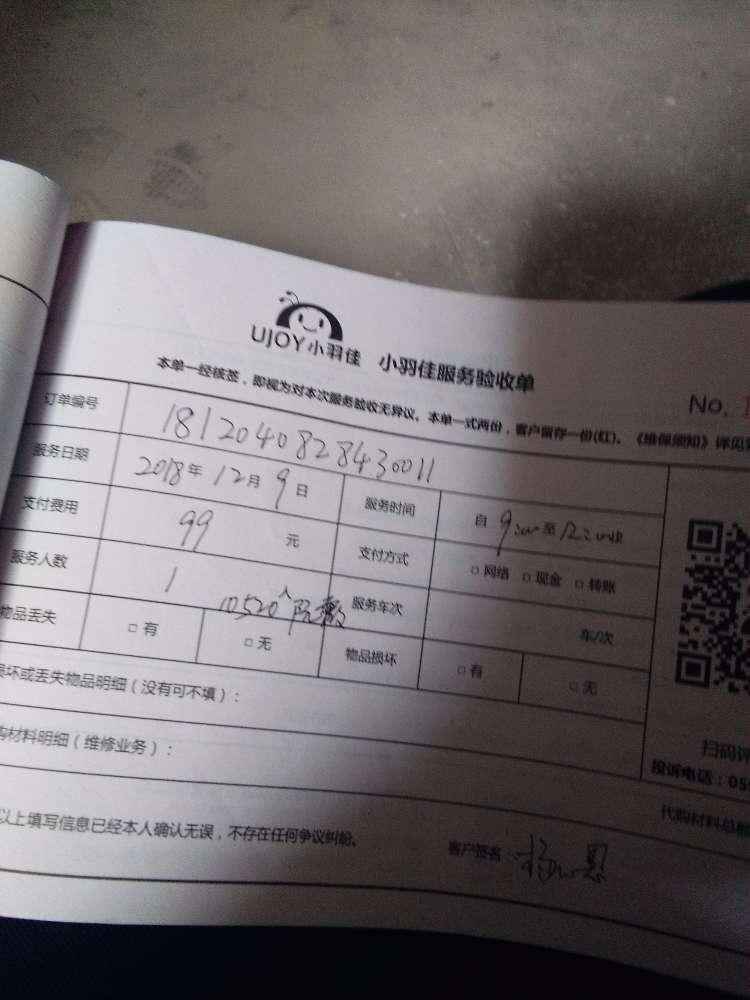 UJOY小羽佳 小羽佳服务验收单
No.
本单一经核签，即视为对本次服务验收无异议。本单一式两份，客户留存一份(红)。《维保须知》详见
订单编号 1812040828430011
服务日期 2018年12月9日 服务时间 自 9:00 至 12:00
支付费用 99 元 支付方式 □网络 □现金 □转账
服务人数 1 人 服务车次 车/次
10520
物品丢失 □有 □无 物品损坏 □有 □无
损坏或丢失物品明细（没有可不填）：
购材料明细（维修业务）：
扫码评
投诉电话：059
代购材料总
以上填写信息已经本人确认无误，不存在任何争议纠纷。
客户签名：